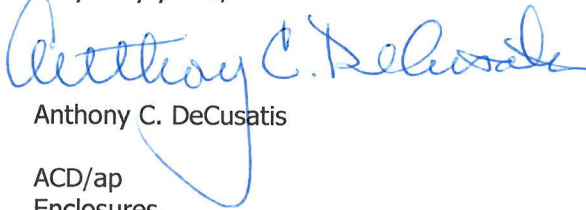 Anthony C. DeCusatis
Anthony C. DeCusatis
ACD/ap
Enclosures